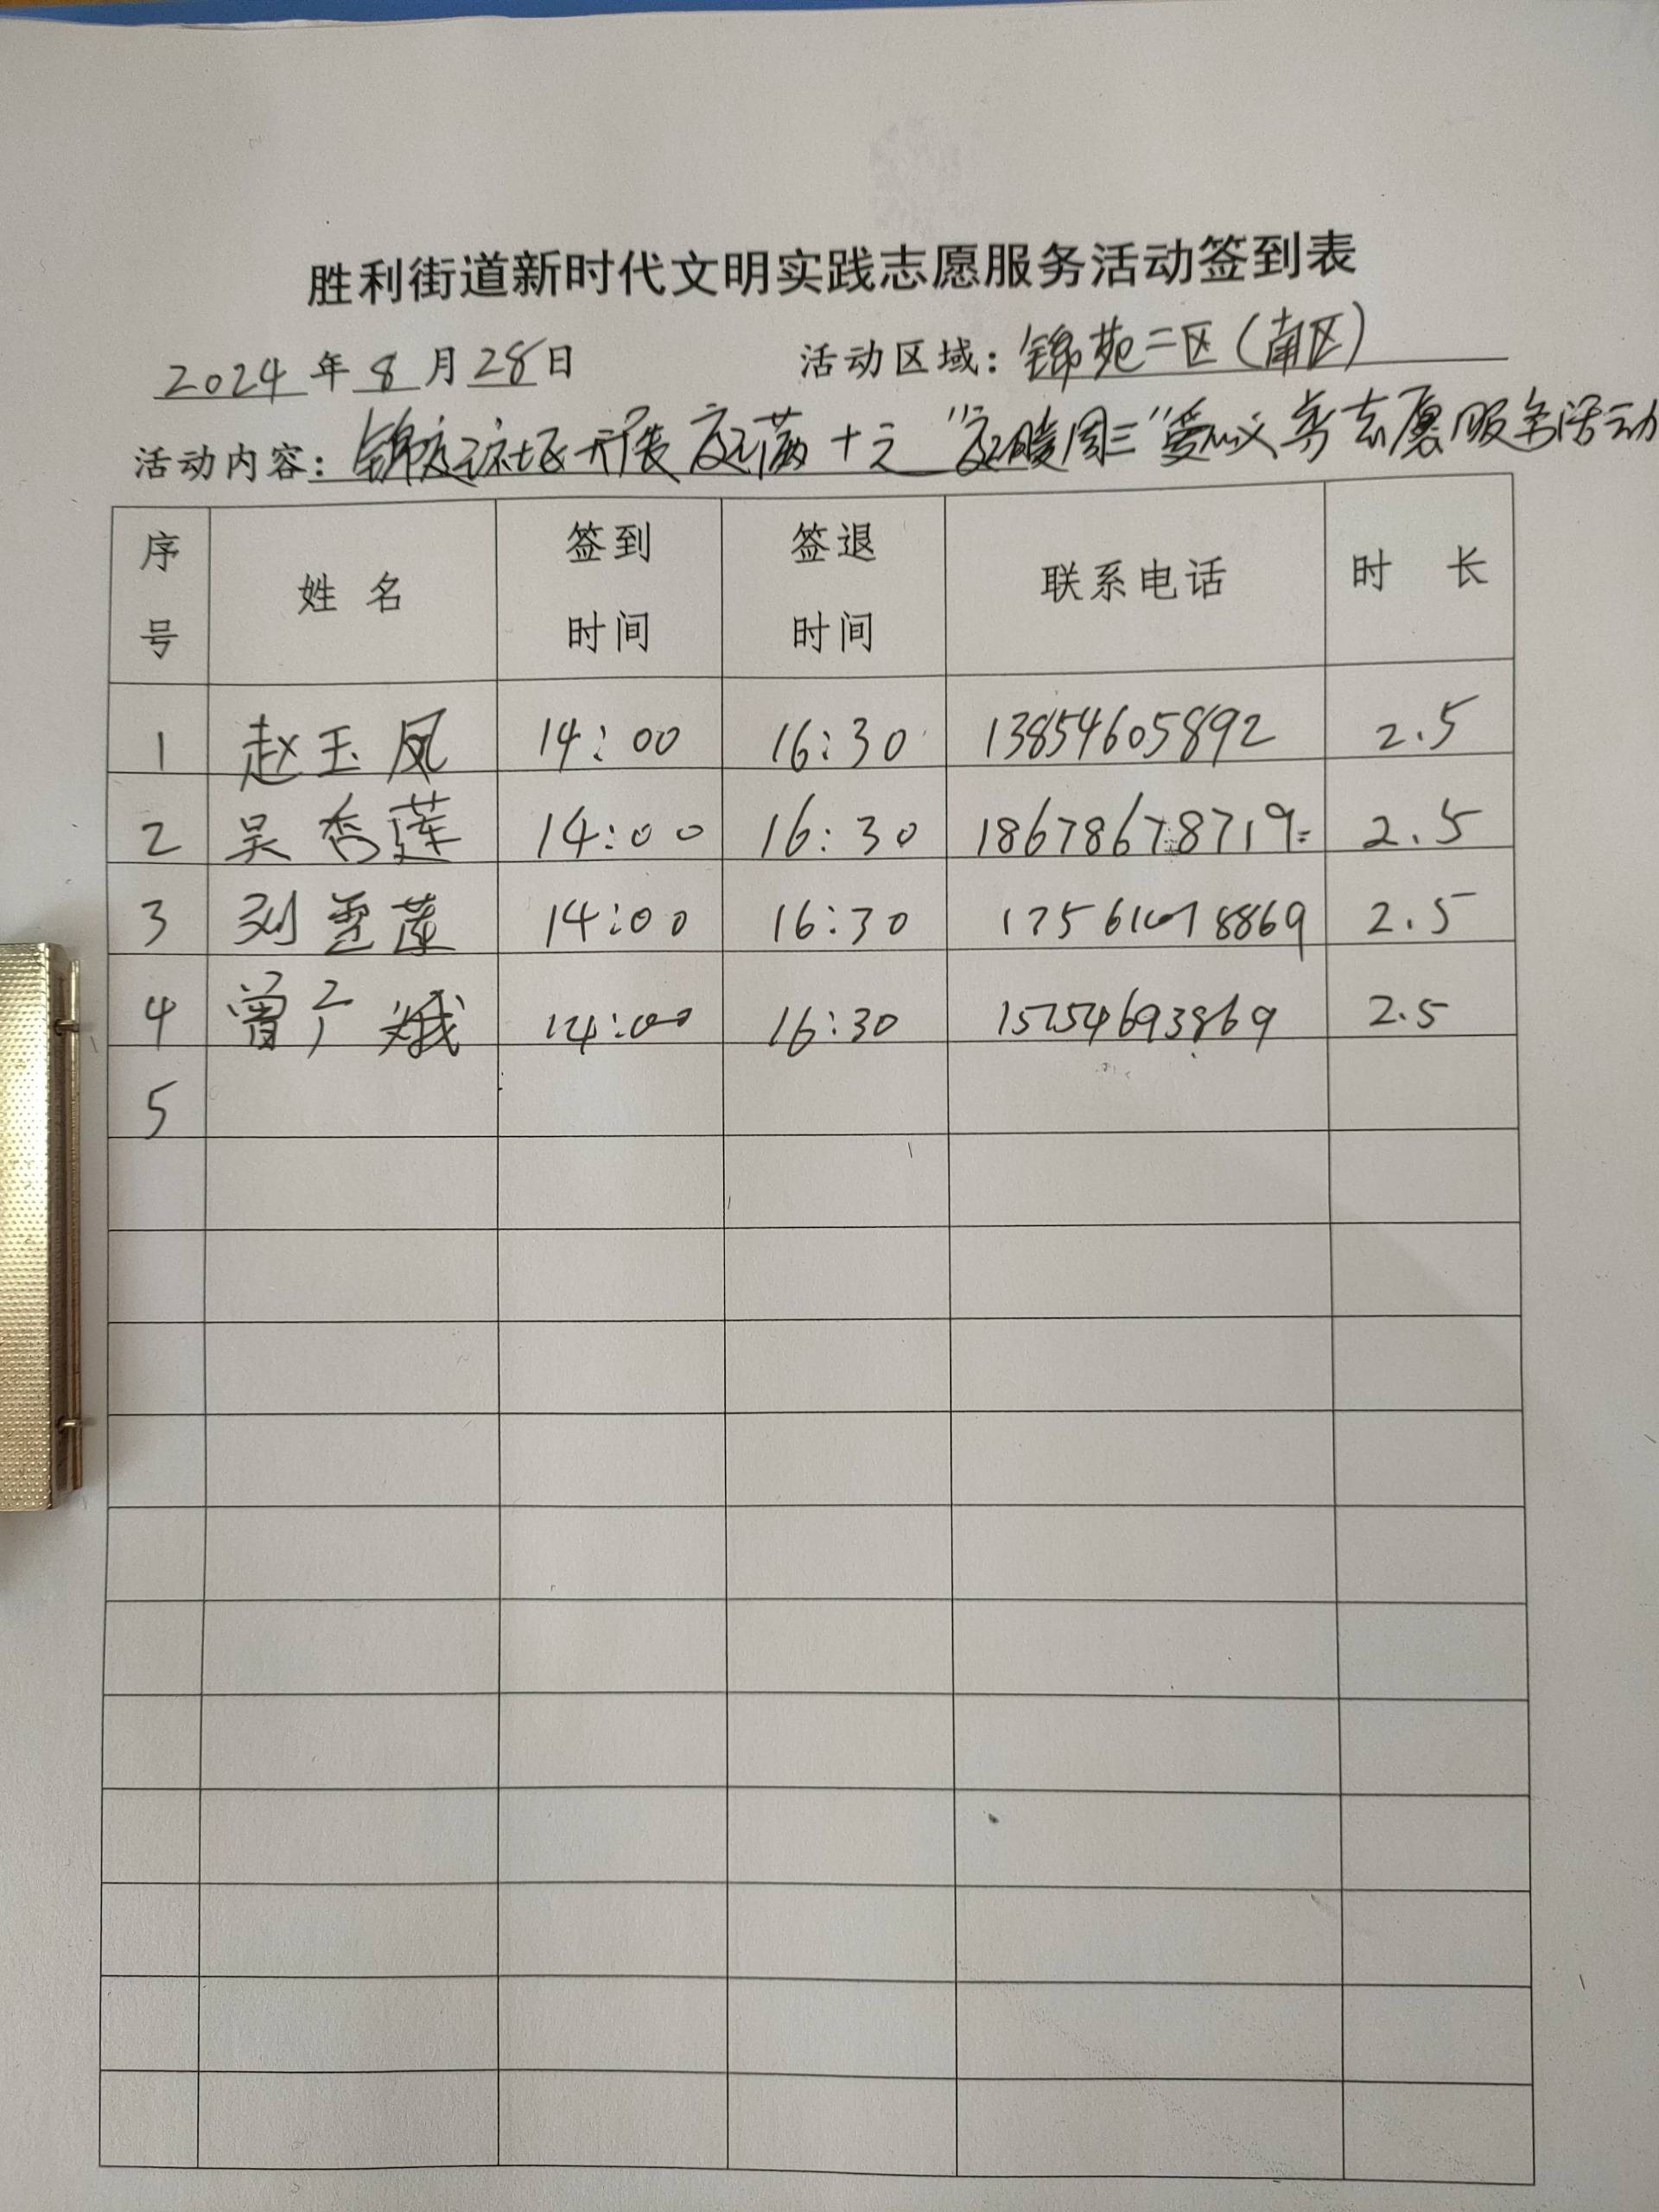 胜利街道新时代文明实践志愿服务活动签到表
2024年8月28日 活动区域：锦苑二区（南区）
活动内容：锦苑社区开展 志愿服务活动
序号 姓名 签到时间 签退时间 联系电话 时长
1 赵玉凤 14:00 16:30 13854605892 2.5
2 吴秀莲 14:00 16:30 18678678719 2.5
3 刘 莲 14:00 16:30 2.5
4 曾广娥 14:00 16:30 15254693869 2.5
5